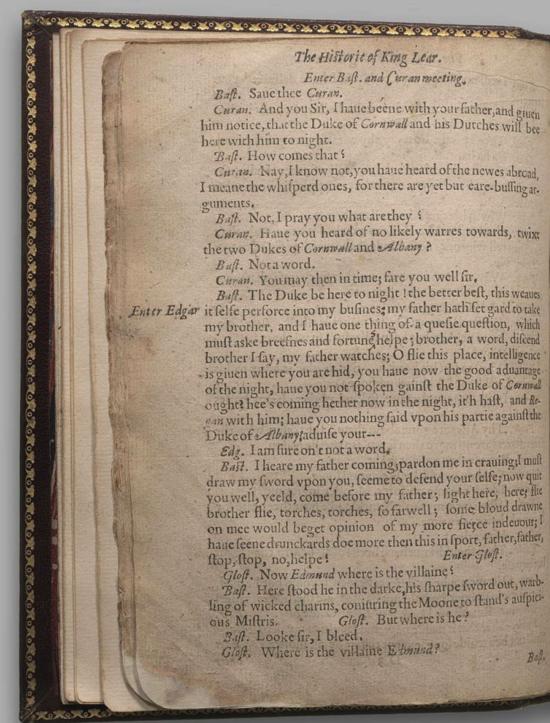 The Historie of King Lear.
Enter Bast. and Curan meeting.
Bast. Saue thee Curan.
Curan. And you Sir, I haue beene with your father, and giuen
him notice, that the Duke of Cornwall and his Dutches will bee
here with him to night.
Bast. How comes that?
Curan. Nay, I know not, you haue heard of the newes abroad,
I meane the whisperd ones, for there are yet but eare-bussing ar-
guments.
Bast. Not, I pray you what are they?
Curan. Haue you heard of no likely warres towards, twixt
the two Dukes of Cornwall and Albany?
Bast. Not a word.
Curan. You may then in time; fare you well sir.
Bast. The Duke be here to night! the better best, this weaues
Enter Edgar it selfe perforce into my busines; my father hath set gard to take
my brother, and I haue one thing of a quesie question, which
must aske breefnes and fortune helpe; brother, a word, discend
brother I say, my father watches; O flie this place, intelligence
is giuen where you are hid, you haue now the good aduantage
of the night, haue you not spoken gainst the Duke of Cornwall
ought? hee's coming hether now in the night, it'h hast, and Re-
gan with him; haue you nothing said vpon his partie against the
Duke of Albany, aduise your---
Edg. I am sure on't not a word.
Bast. I heare my father coming, pardon me in crauing, I must
draw my sword vpon you, seeme to defend your selfe, now quit
you well, yeeld, come before my father; light here, here; flie
brother flie, torches, torches, so farwell; some bloud drawne
on mee would beget opinion of my more fierce indeuour; I
haue seene drunckards doe more then this in sport, father, father,
stop, stop, no, helpe? Enter Glost.
Glost. Now Edmund where is the villaine?
Bast. Here stood he in the darke, his sharpe sword out, warb-
ling of wicked charms, coniuring the Moone to stand's auspici-
ous Mistris. Glost. But where is he?
Bast. Looke sir, I bleed.
Glost. Where is the villaine Edmund?
Bast.